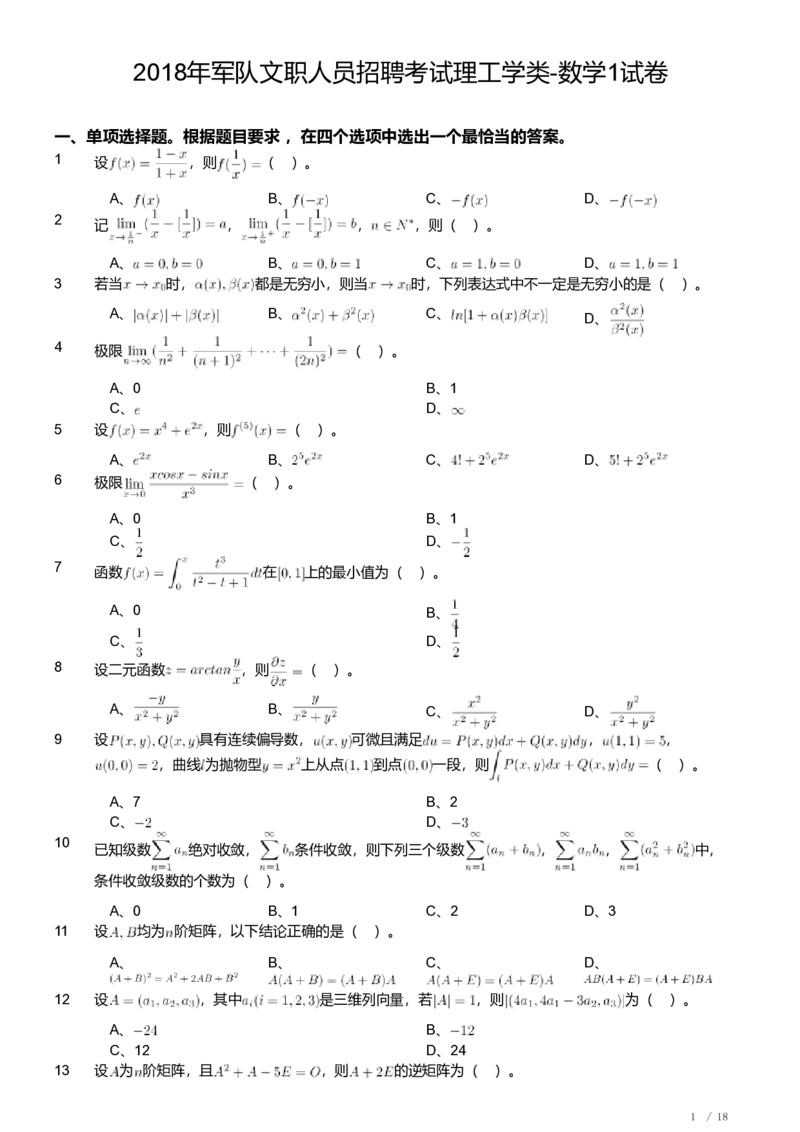 2018年军队文职人员招聘考试理工学类-数学1试卷
一、单项选择题。根据题目要求 ，在四个选项中选出一个最恰当的答案。
1 设f(x) = \frac{1-x}{1+x}，则f(\frac{1}{x}) =（ ）。
A、f(x) B、f(-x) C、-f(x) D、-f(-x)
2 记\lim_{x→\frac{1}{n}^-}(\frac{1}{x} - [\frac{1}{x}]) = a，\lim_{x→\frac{1}{n}^+}(\frac{1}{x} - [\frac{1}{x}]) = b，n ∈ N*，则（ ）。
A、a = 0, b = 0 B、a = 0, b = 1 C、a = 1, b = 0 D、a = 1, b = 1
3 若当x → x₀时，α(x), β(x)都是无穷小，则当x → x₀时，下列表达式中不一定是无穷小的是（ ）。
A、|α(x)| + |β(x)| B、α²(x) + β²(x) C、ln[1 + α(x)β(x)] D、\frac{α²(x)}{β²(x)}
4 极限\lim_{n→∞}(\frac{1}{n²} + \frac{1}{(n+1)²} + ··· + \frac{1}{(2n)²}) =（ ）。
A、0 B、1
C、e D、∞
5 设f(x) = x⁴ + e^{2x}，则f^{(5)}(x) =（ ）。
A、e^{2x} B、2⁵e^{2x} C、4! + 2⁵e^{2x} D、5! + 2⁵e^{2x}
6 极限\lim_{x→0}\frac{xcosx - sinx}{x³} =（ ）。
A、0 B、1
C、\frac{1}{2} D、-\frac{1}{2}
7 函数f(x) = ∫_0^x \frac{t³}{t² - t + 1}dt在[0, 1]上的最小值为（ ）。
A、0 B、\frac{1}{4}
C、\frac{1}{3} D、\frac{1}{2}
8 设二元函数z = arctan\frac{y}{x}，则\frac{∂z}{∂x} =（ ）。
A、\frac{-y}{x² + y²} B、\frac{y}{x² + y²} C、\frac{x²}{x² + y²} D、\frac{y²}{x² + y²}
9 设P(x, y), Q(x, y)具有连续偏导数，u(x, y)可微且满足du = P(x, y)dx + Q(x, y)dy，u(1, 1) = 5,，
u(0, 0) = 2，曲线l为抛物型y = x²上从点(1, 1)到点(0, 0)一段，则∫_l P(x, y)dx + Q(x, y)dy =（ ）。
A、7 B、2
C、-2 D、-3
10 已知级数\sum_{n=1}^{∞} a_n绝对收敛，\sum_{n=1}^{∞} b_n条件收敛，则下列三个级数\sum_{n=1}^{∞}(a_n + b_n)，\sum_{n=1}^{∞} a_n b_n，\sum_{n=1}^{∞}(a_n² + b_n²)中，
条件收敛级数的个数为（ ）。
A、0 B、1 C、2 D、3
11 设A, B均为n阶矩阵，以下结论正确的是（ ）。
A、 B、 C、 D、
(A + B)² = A² + 2AB + B² A(A + B) = (A + B)A A(A + E) = (A + E)A AB(A + E) = (A + E)BA
12 设A = (a₁, a₂, a₃)，其中a_i(i = 1, 2, 3)是三维列向量，若|A| = 1，则|(4a₁, 4a₁ - 3a₂, a₃)|为（ ）。
A、-24 B、-12
C、12 D、24
13 设A为n阶矩阵，且A² + A - 5E = O，则A + 2E的逆矩阵为（ ）。
1 / 18